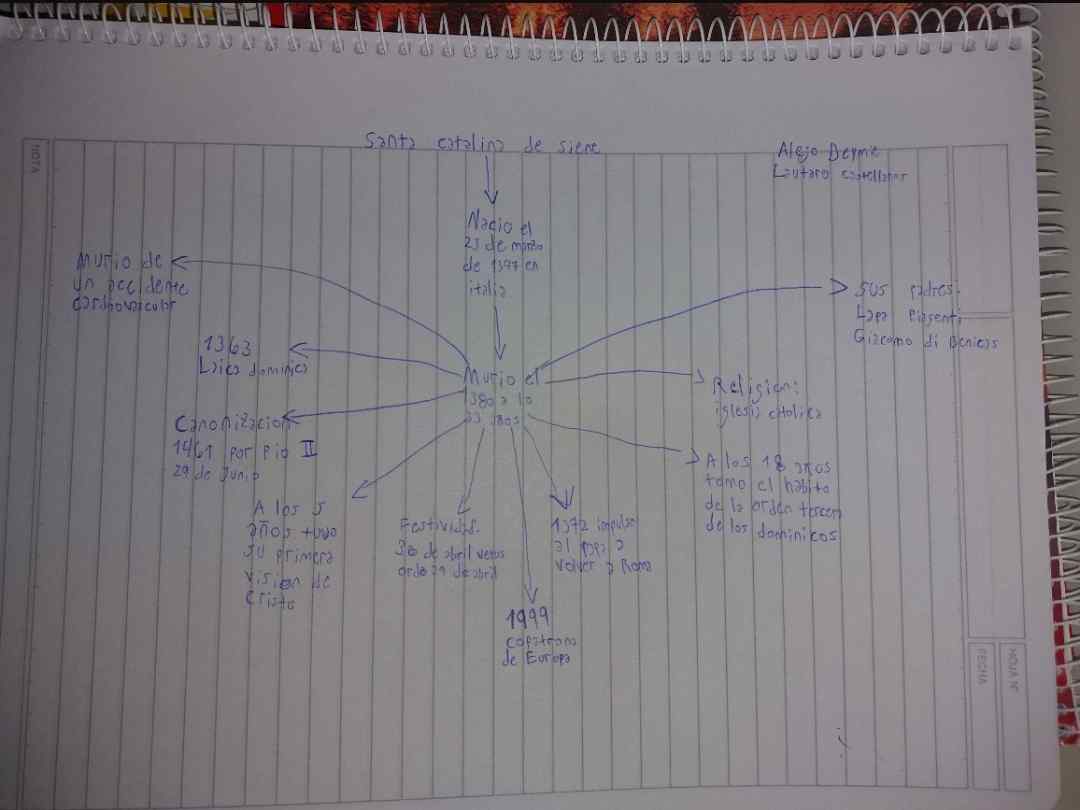 Santa catalina de siene
Alejo Deyme
Lautaro castellanos
Nacio el
23 de marzo
de 1347 en
italia
Murio de
un accidente
cardiovascular
sus padres.
Lapa Piagenti
Giacomo di Benicas
1363
Laica dominica
Murio el
1380 a lo
33 años
Religion:
iglesia catolica
Canonizacion
1461 por pio II
29 de Junio
A los 18 años
tomo el habito
de la orden tercera
de los dominicos
A los 5
años tuvo
su primera
vision de
Cristo
Festividad.
30 de abril vetus
ordo 29 de abril
1372 impulso
al papa a
volver a Roma
1999
copatrona
de Europa
NOTA
FECHA
HOJA N°